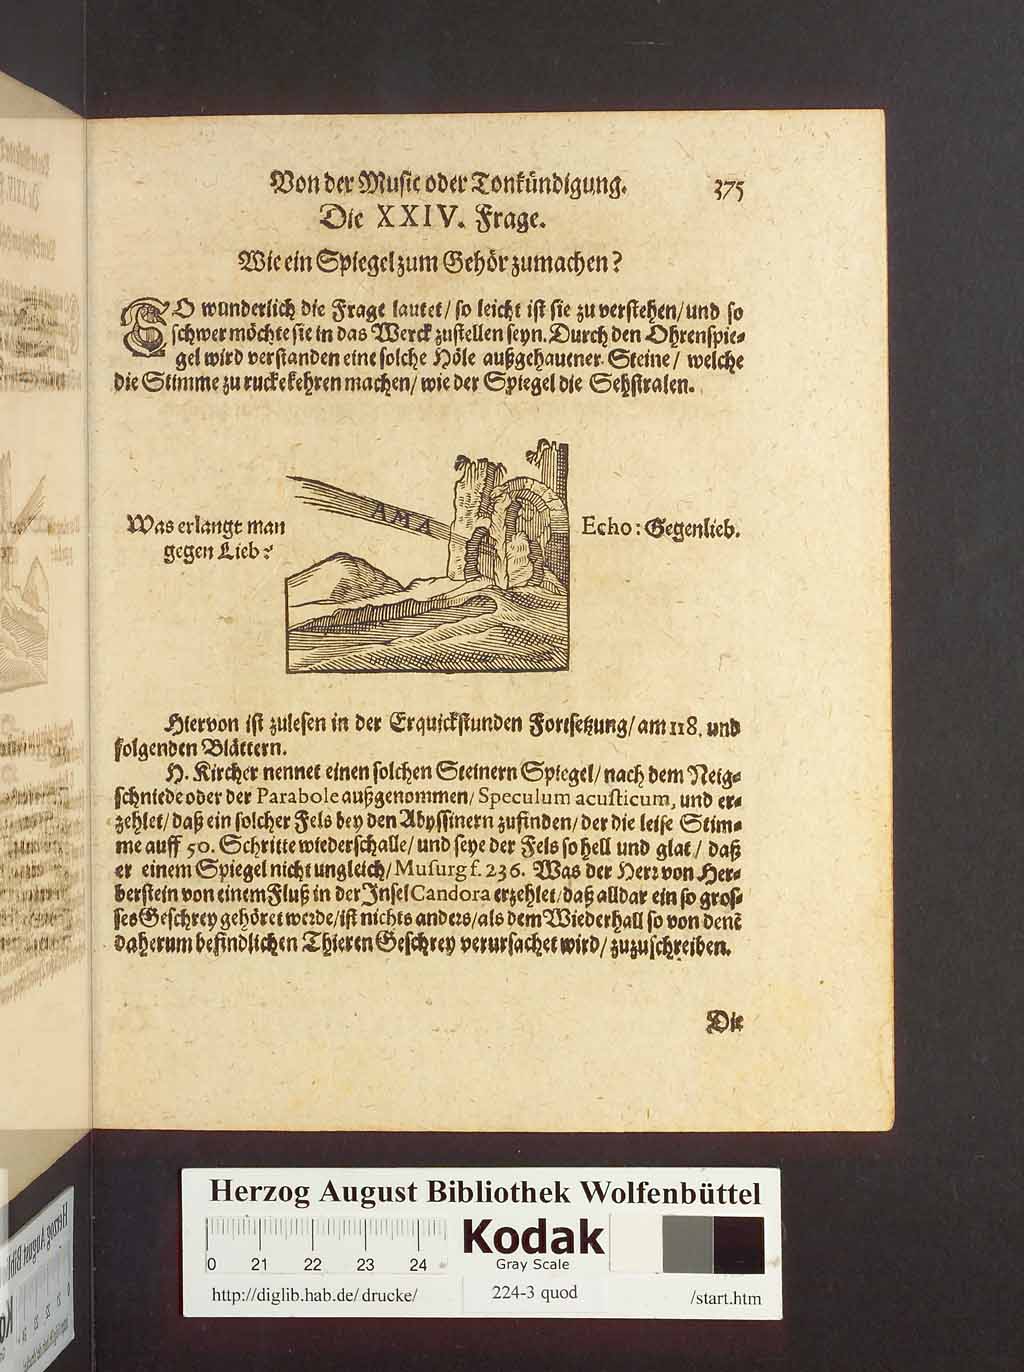 Von der Music oder Tonkündigung. 375
Die XXIV. Frage.
Wie ein Spiegel zum Gehör zumachen?
SO wunderlich die Frage lautet/ so leicht ist sie zu verstehen/ und so
schwer möchte sie in das Werck zustellen seyn. Durch den Ohrenspie-
gel wird verstanden eine solche Höle außgehauener Steine/ welche
die Stimme zu rucke kehren machen/ wie der Spiegel die Sehstralen.
AMA
Was erlangt man
gegen Lieb?
Echo: Gegenlieb.
Hiervon ist zulesen in der Erquickstunden Fortsetzung/ am 118. und
folgenden Blättern.
H. Kircher nennet einen solchen Steinern Spiegel/ nach dem Neig-
schniede oder der Parabole außgenommen/ Speculum acusticum, und er-
zehlet/ daß ein solcher Fels bey den Abyssinern zufinden/ der die leise Stim-
me auff 50. Schritte wiederschalle/ und seye der Fels so hell und glat/ daß
er einem Spiegel nicht ungleich/ Musurg f. 236. Was der Herr von Her-
berstein von einem Fluß in der Insel Candora erzehlet/ daß alldar ein so gros-
ses Geschrey gehöret werde/ ist nichts anders/ als dem Wiederhall so von denẽ
daherum befindlichen Thieren Geschrey verursachet wird/ zuzuschreiben.
Die
Herzog August Bibliothek Wolfenbüttel
0 21 22 23 24
Kodak
Gray Scale
http://diglib.hab.de/drucke/ 224-3 quod /start.htm